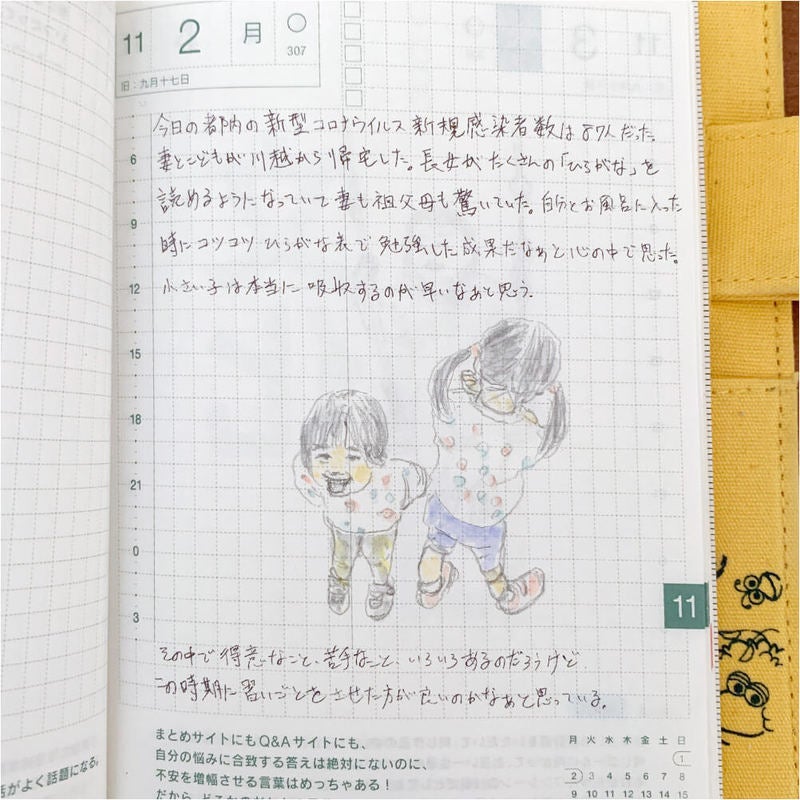 11 2 月 ○
307
旧:九月十七日
今日の都内の新型コロナウイルス新規感染者数は87人だった。
妻とこどもが川越から帰宅した。長女がたくさんの「ひらがな」を
読めるようになっていて妻も祖父母も驚いていた。自分とお風呂に入った
時にコツコツひらがな表で勉強した成果だなぁと心の中で思った。
小さい子は本当に吸収するのが早いなぁと思う。
6
9
12
15
18
21
0
3
11
その中で得意なこと、苦手なこと、いろいろあるのだろうけど
この時期に習いごとをさせた方が良いのかなぁと思っている。
まとめサイトにもQ&Aサイトにも、
自分の悩みに合致する答えは絶対にないのに、
不安を増幅させる言葉はめっちゃある!
月 火 水 木 金 土 日
1
2 3 4 5 6 7 8
9 10 11 12 13 14 15
がよく話題になる。